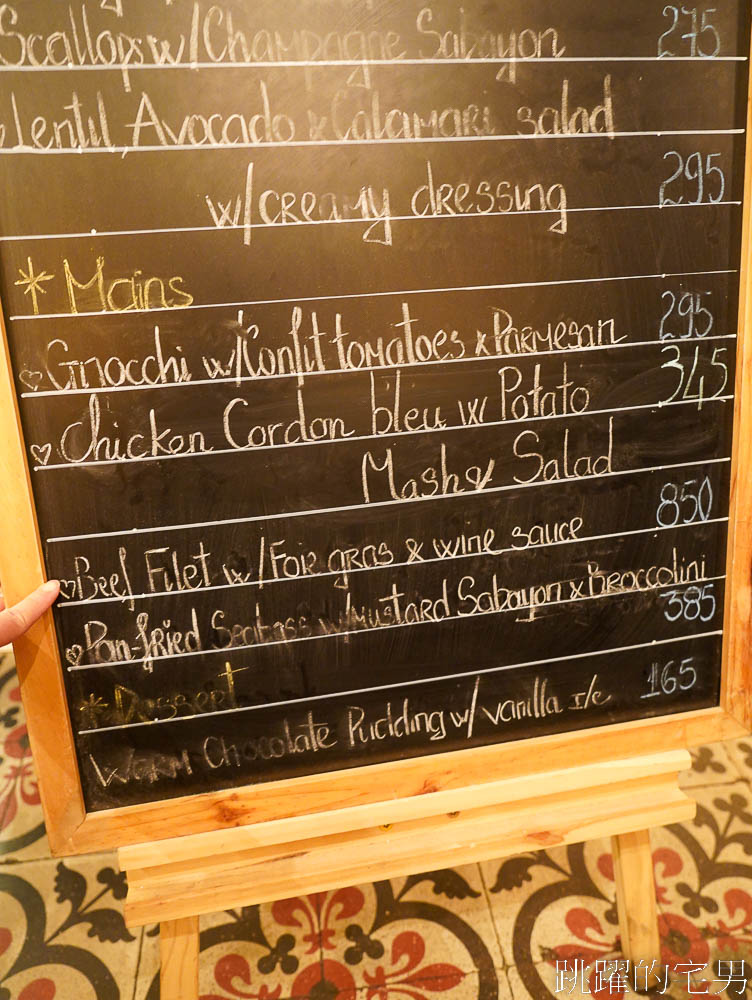 Scallops w/ Champagne Sabayon 275
Lentil, Avocado x Calamari salad
w/ creamy dressing 295
* Mains
Gnocchi w/ Confit tomatoes x Parmesan 295
Chicken Cordon bleu w Potato 345
Mash & Salad
Beef Filet w/ Foie gras & wine sauce 850
Pan-fried Seabass w/ Mustard Sabayon x Broccolini
385
* Dessert
Warm Chocolate Pudding w/ vanilla I/c 165
跳躍的宅男